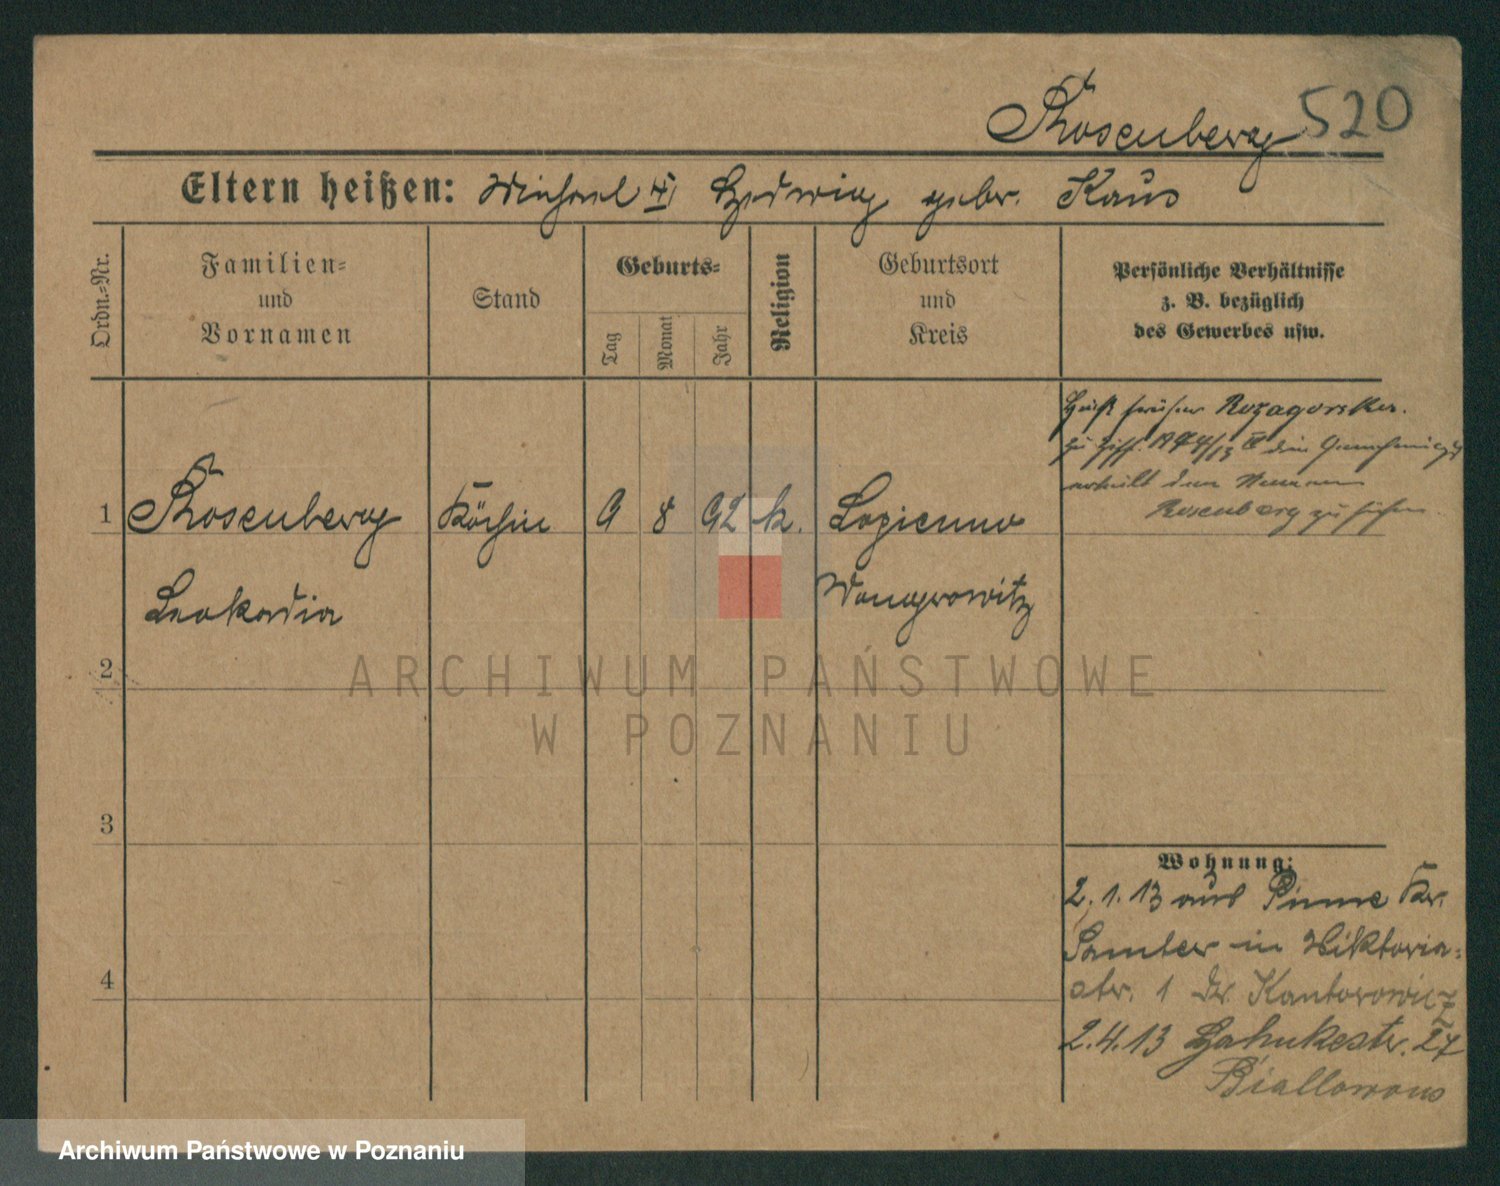 Rosenberg 520
Eltern heißen: Michael u. Hedwig gebr. Kaus
Ordn.-Nr.
Familien=
und
Vornamen
Stand
Geburts=
Tag
Monat
Jahr
Religion
Geburtsort
und
Kreis
Persönliche Verhältnisse
z. B. bezüglich
des Gewerbes usw.
1 Rosenberg Köchin 9 8 92 k. Lopienno
Leokadia Wongrowitz
Heißt früher
zu Ziff.
erteilt den Namen
Rosenberg zu führen.
2
3
4
Wohnung:
2.1.13 aus Pinne Kr.
Samter in Viktoria=
str. 1 Dr. Kantorowicz
2.4.13 27
ARCHIWUM PAŃSTWOWE
W POZNANIU
Archiwum Państwowe w Poznaniu